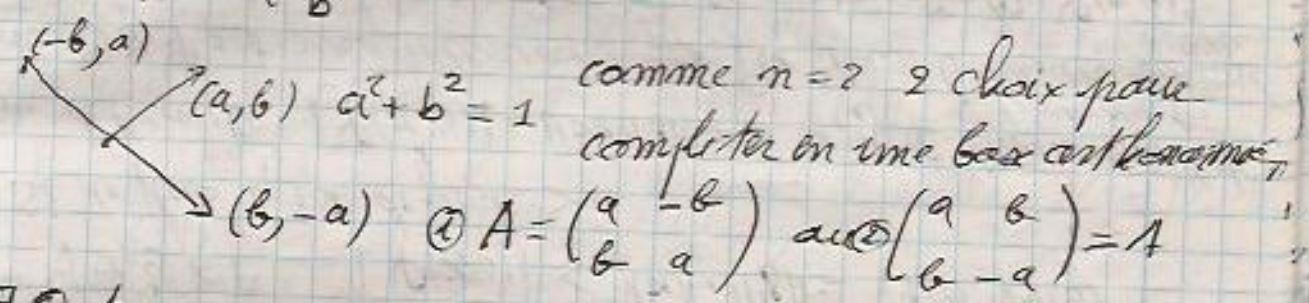 b
(-b,a)
(a,b) a²+b²=1 comme n=2 2 choix pour
completer en une base orthonormée,
(b,-a) ① A = (a -b / b a) ou ② (a b / b -a) = A